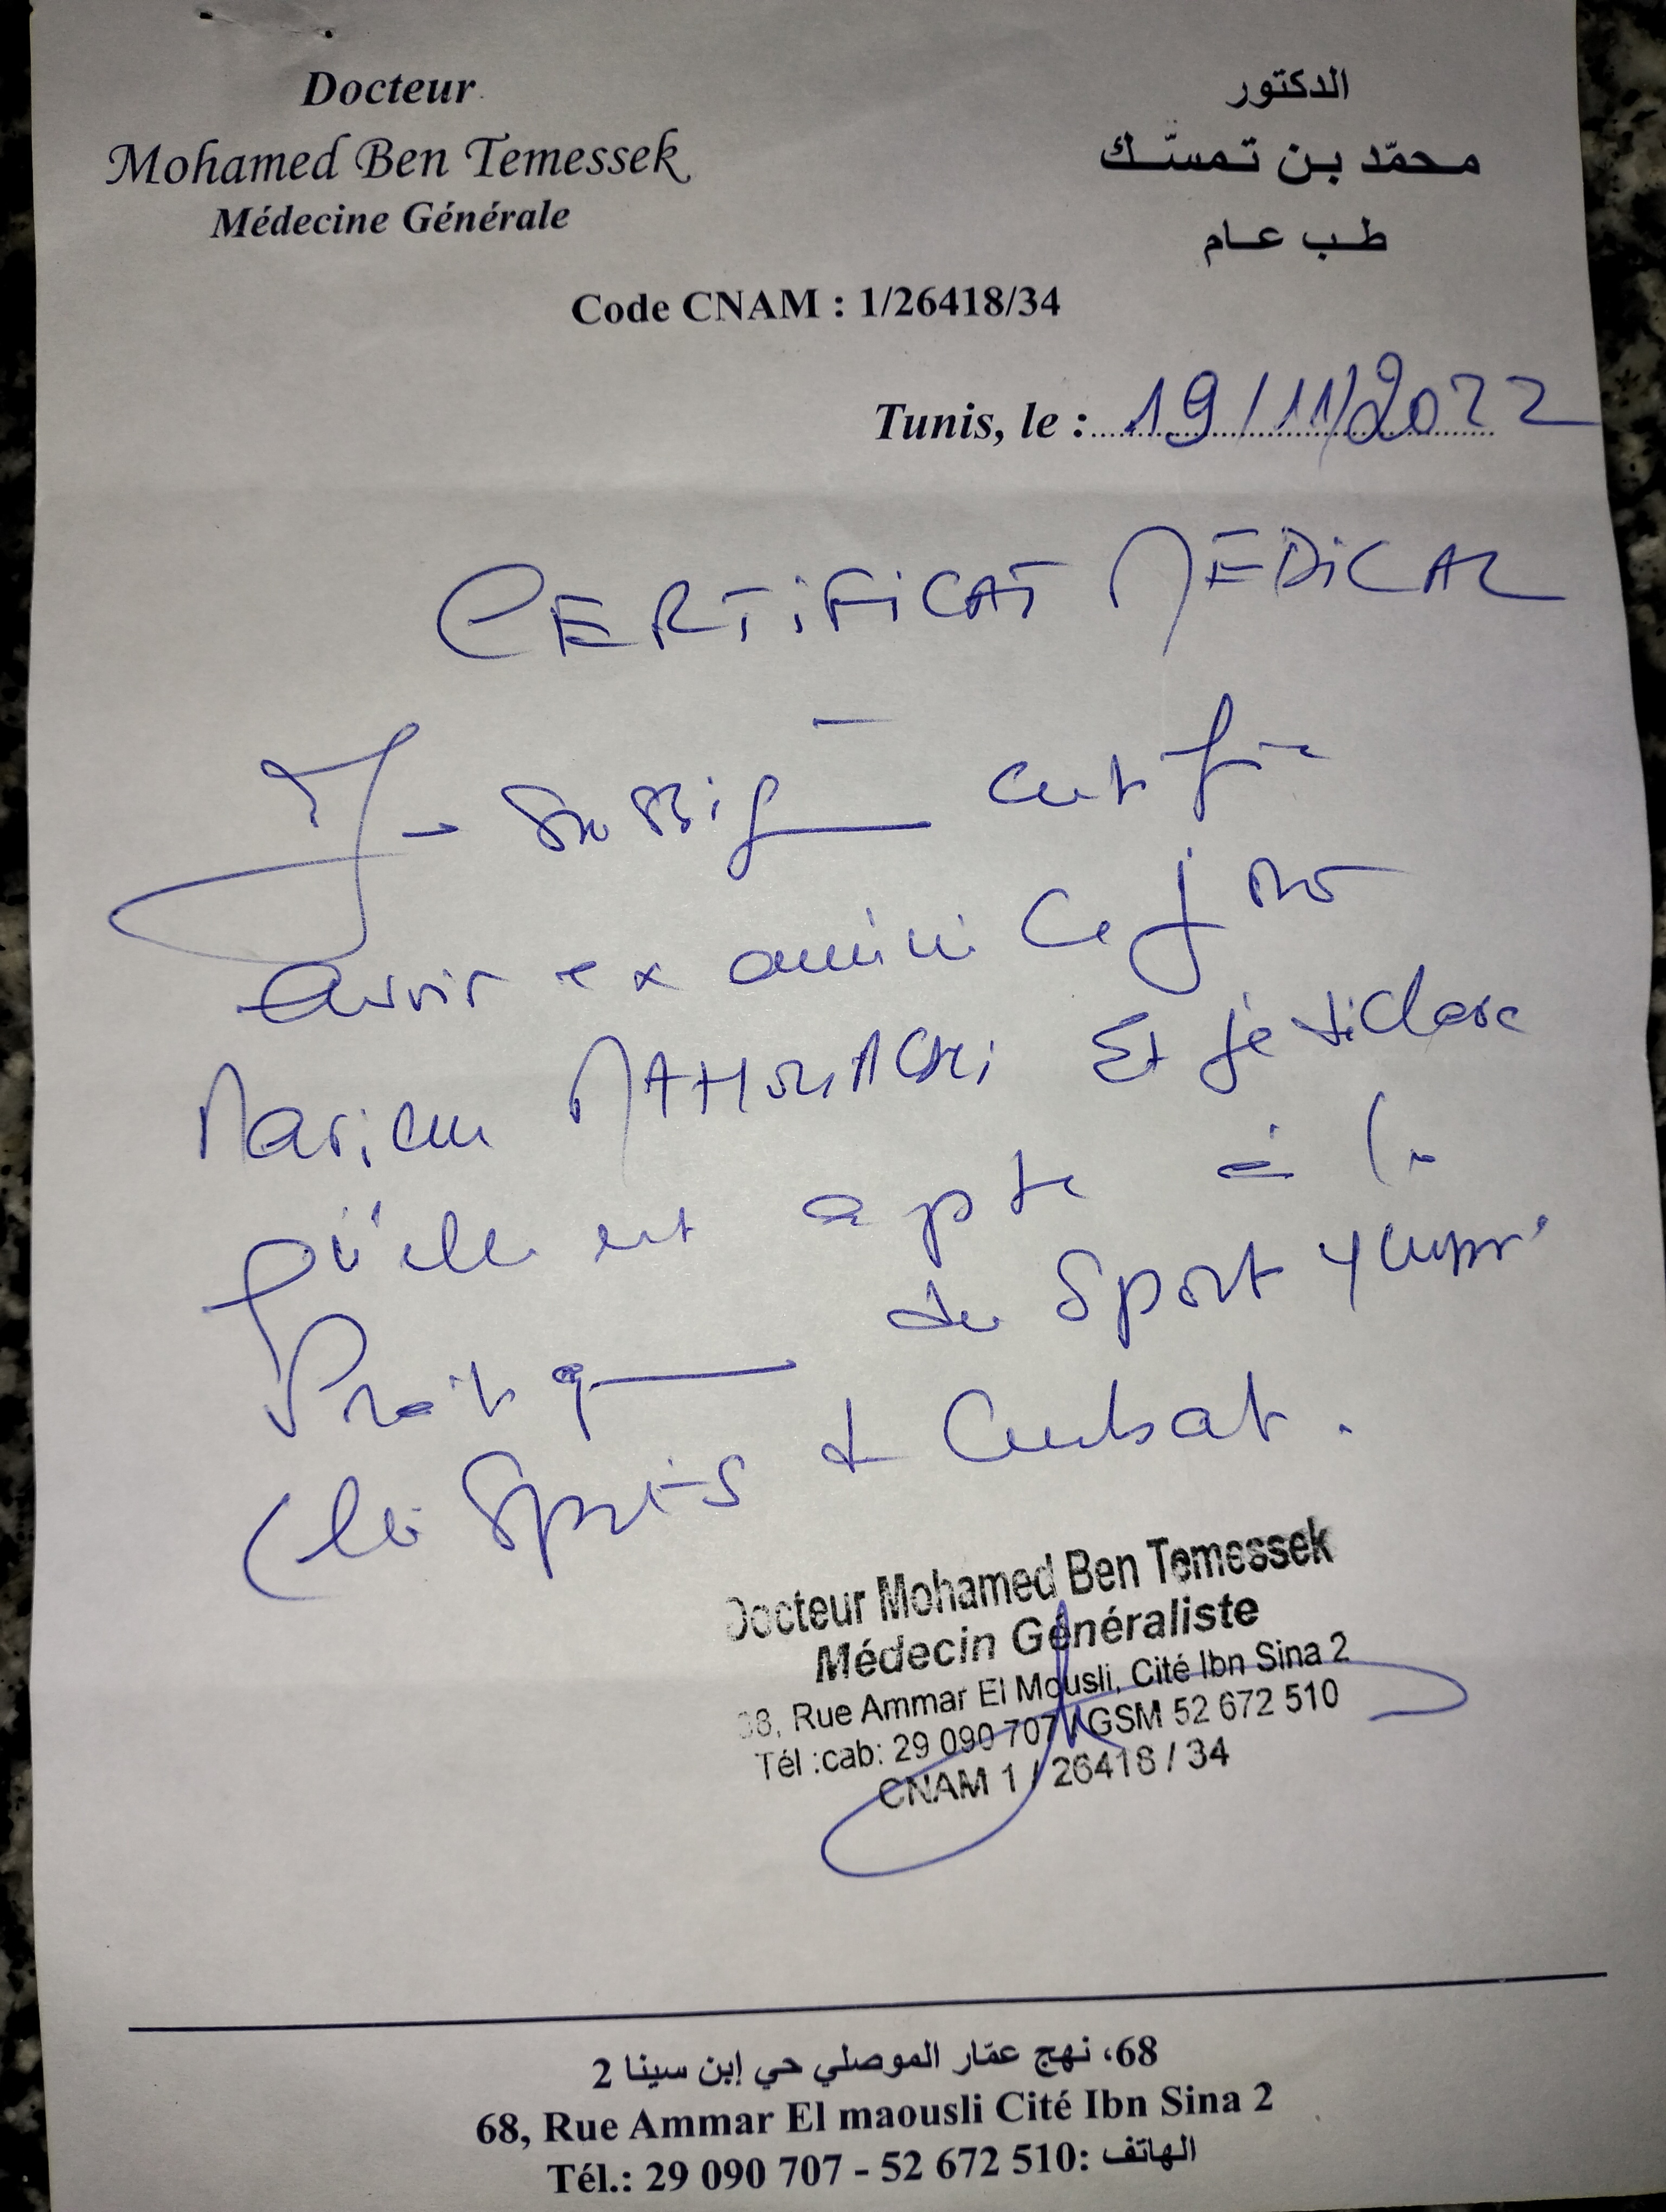 Docteur
Mohamed Ben Temessek
Médecine Générale
الدكتور
محمّد بن تمسّك
طب عام
Code CNAM : 1/26418/34
Tunis, le : 19/11/2022
CERTIFICAT MEDICAL
Je soussigné certifie
avoir examiné ce jour
Mariem et je déclare
qu'elle est apte à la
Pratique de Sport y compris
(les Sports de Combat.
Docteur Mohamed Ben Temessek
Médecin Généraliste
68, Rue Ammar El Mousli, Cité Ibn Sina 2
Tél :cab: 29 090 707 / GSM 52 672 510
CNAM 1 / 26418 / 34
68، نهج عمّار الموصلي حي إبن سينا 2
68, Rue Ammar El maousli Cité Ibn Sina 2
Tél.: 29 090 707 - 52 672 510 :الهاتف